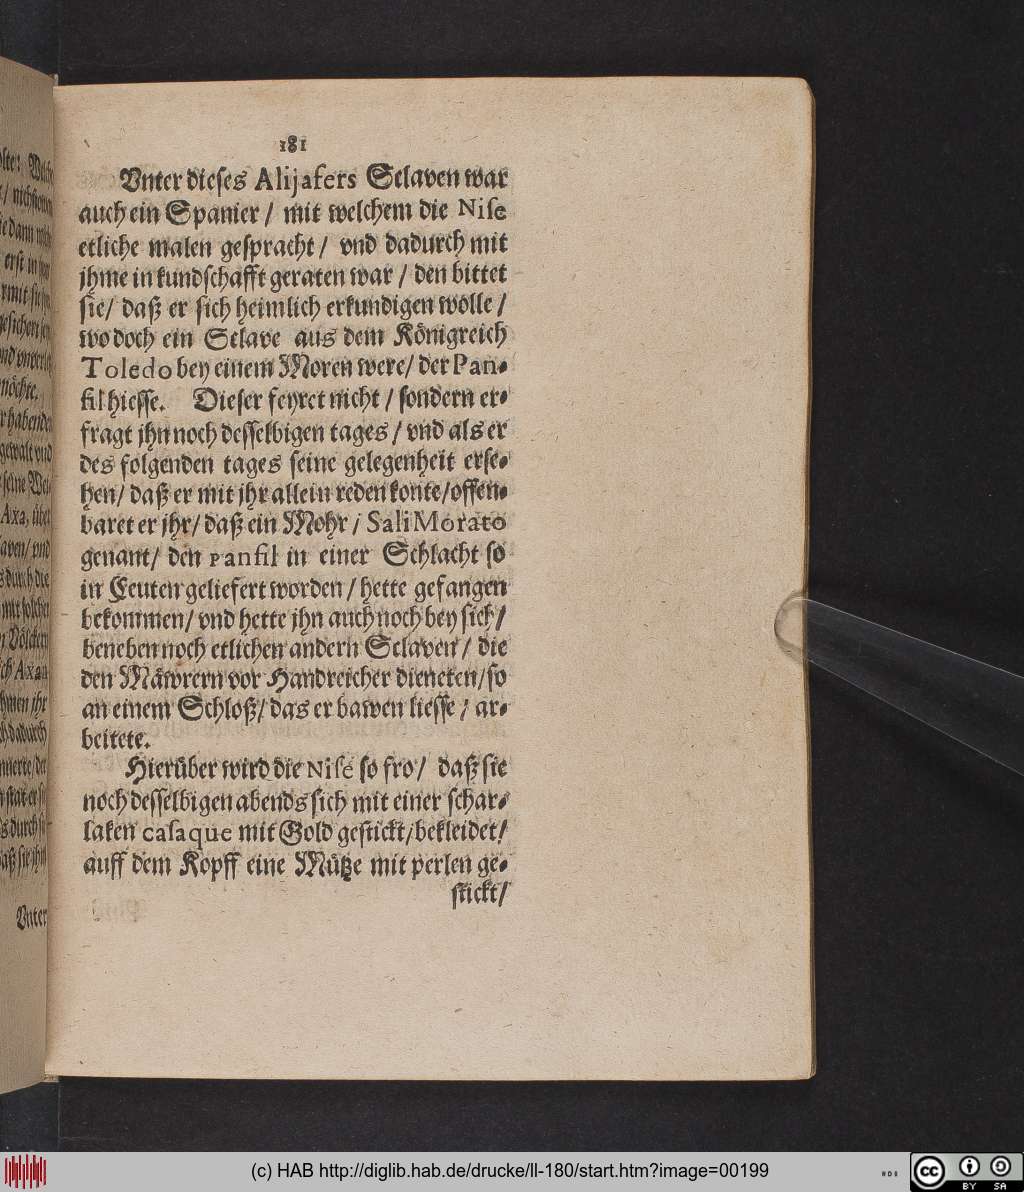 181
Vnter dieses Alijafers Sclaven war
auch ein Spanier / mit welchem die Nise
etliche malen gespracht / vnd dadurch mit
jhme in kundschafft geraten war / den bittet
sie/ daß er sich heimlich erkundigen wolle /
wo doch ein Sclave aus dem Königreich
Toledo bey einem Moren were/ der Pan-
fil hiesse. Dieser feyret nicht / sondern er-
fragt jhn noch desselbigen tages / vnd als er
des folgenden tages seine gelegenheit erse-
hen/ daß er mit jhr allein reden konte/offen-
baret er jhr/ daß ein Mohr / Sali Morato
genant/ den Panfil in einer Schlacht so
in Ceuten geliefert worden / hette gefangen
bekommen/ vnd hette jhn auch noch bey sich/
beneben noch etlichen andern Sclaven / die
den Mäwrern vor Handreicher dieneten/so
an einem Schloß/ das er bawen liesse / ar-
beitete.
Hierüber wird die Nise so fro/ daß sie
noch desselbigen abends sich mit einer schar-
laken casaque mit Gold gestickt/bekleidet/
auff dem Kopff eine Mütze mit perlen ge-
stickt/
Vnter
(c) HAB http://diglib.hab.de/drucke/ll-180/start.htm?image=00199
cc BY SA